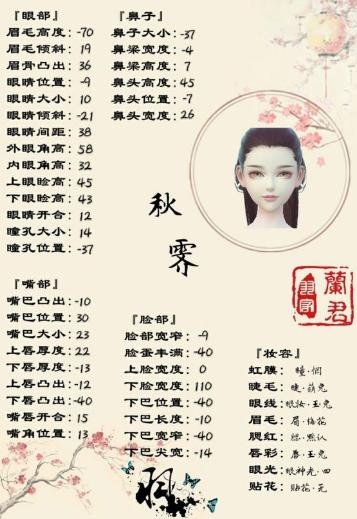 『眼部』
眉毛高度：-70
眉毛倾斜：19
眉骨凸出：36
眼睛位置：-9
眼睛大小：10
眼睛倾斜：-21
眼睛间距：38
外眼角高：58
内眼角高：32
上眼睑高：45
下眼睑高：43
眼睛开合：12
瞳孔大小：14
瞳孔位置：-37
『鼻子』
鼻子大小：-37
鼻梁宽度：-4
鼻梁高度：7
鼻头高度：45
鼻头位置：-7
鼻头宽度：26
秋霁
蘭君
『嘴部』
嘴巴凸出：-10
嘴巴位置：30
嘴巴大小：23
上唇厚度：22
下唇厚度：-13
上唇凸出：-12
下唇凸出：-40
嘴唇开合：15
嘴角位置：13
『脸部』
脸部宽窄：-9
脸蛋丰满：-40
上脸宽度：0
下脸宽度：110
下巴位置：-40
下巴长度：-10
下巴宽窄：-40
下巴尖宽：-14
『妆容』
虹膜：瞳·
睫毛：睫·萌兔
眼线：眼妆·玉兔
眉毛：眉·梅花
腮红：腮·默认
唇彩：唇·玉兔
眼光：眼神光·四
贴花：贴花·无